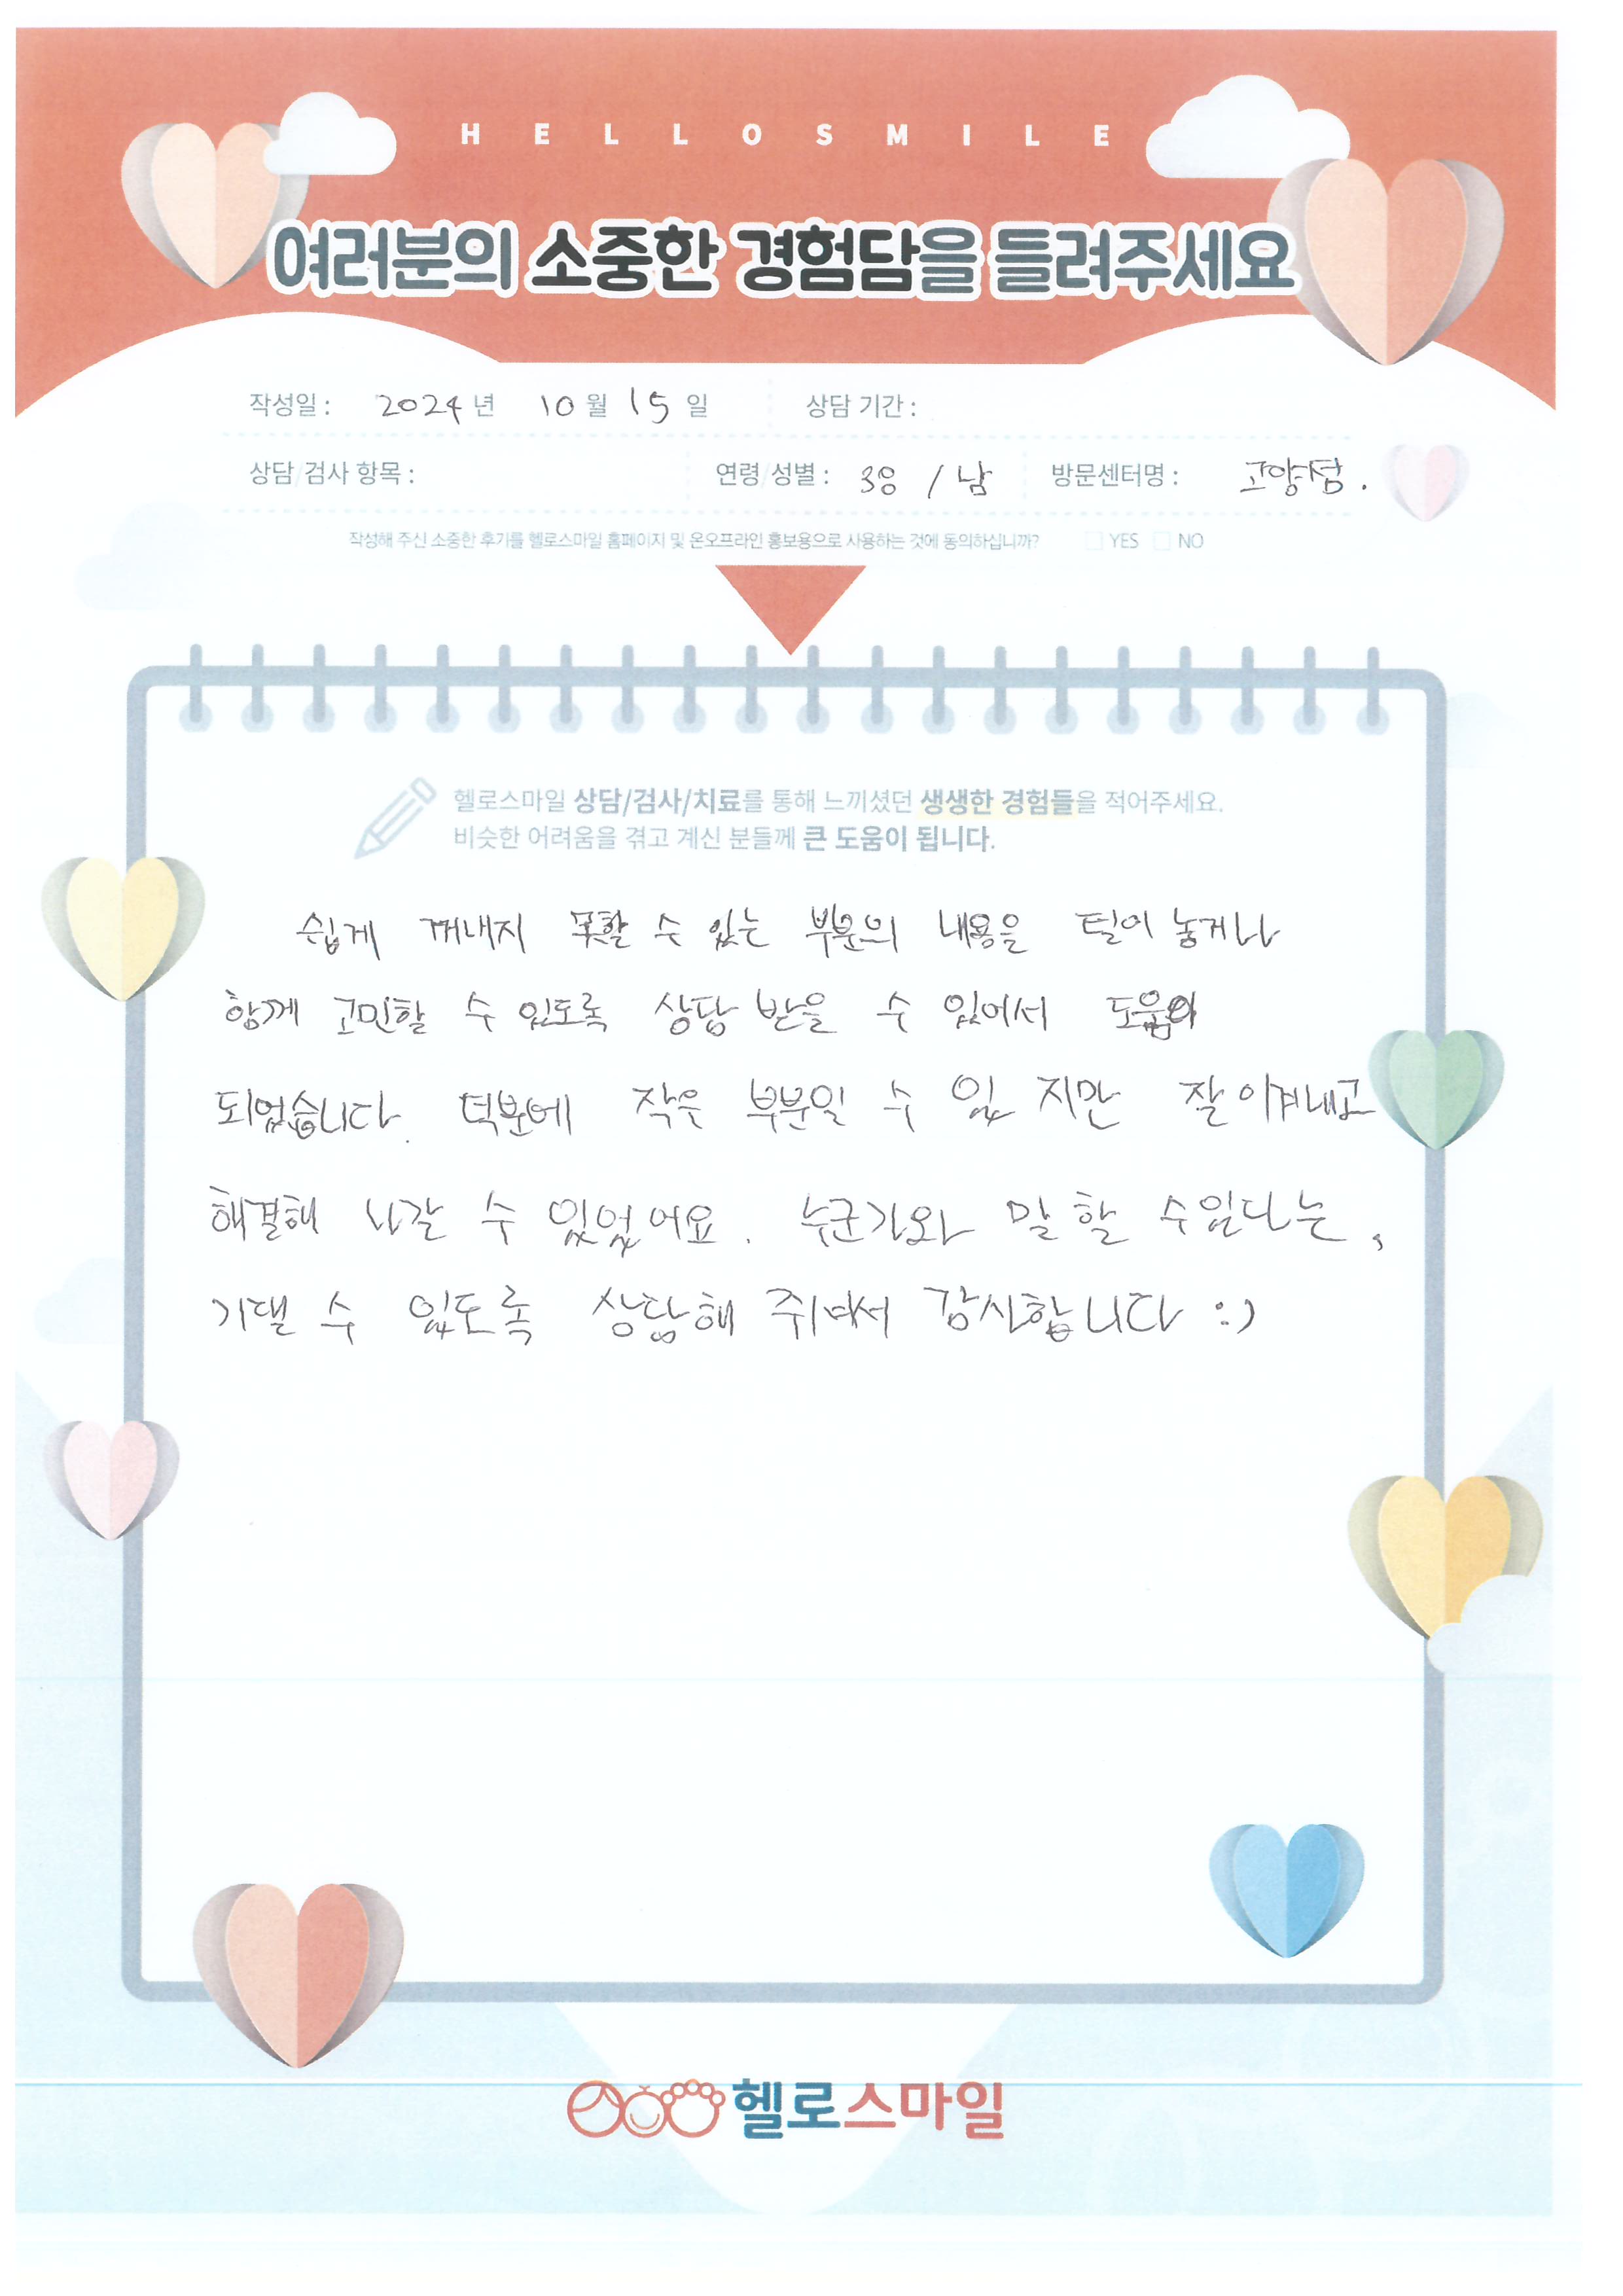 HELLOSMILE
여러분의 소중한 경험담을 들려주세요
작성일 : 2024 년 10 월 15 일 상담 기간 :
상담/검사 항목 : 연령/성별 : 38 / 남 방문센터명 : 고양점.
작성해 주신 소중한 후기를 헬로스마일 홈페이지 및 온오프라인 홍보용으로 사용하는 것에 동의하십니까? YES NO
헬로스마일 상담/검사/치료를 통해 느끼셨던 생생한 경험들을 적어주세요.
비슷한 어려움을 겪고 계신 분들께 큰 도움이 됩니다.
쉽게 꺼내지 못할 수 있는 부분의 내용을 털어 놓게나
함께 고민할 수 있도록 상담 받을 수 있어서 도움이
되었습니다. 덕분에 작은 부분일 수 있 지만 잘 이겨내고
해결해 나갈 수 있었어요. 누군가와 말 할 수있다는,
기댈 수 있도록 상담해 주셔서 감사합니다 :)
헬로스마일